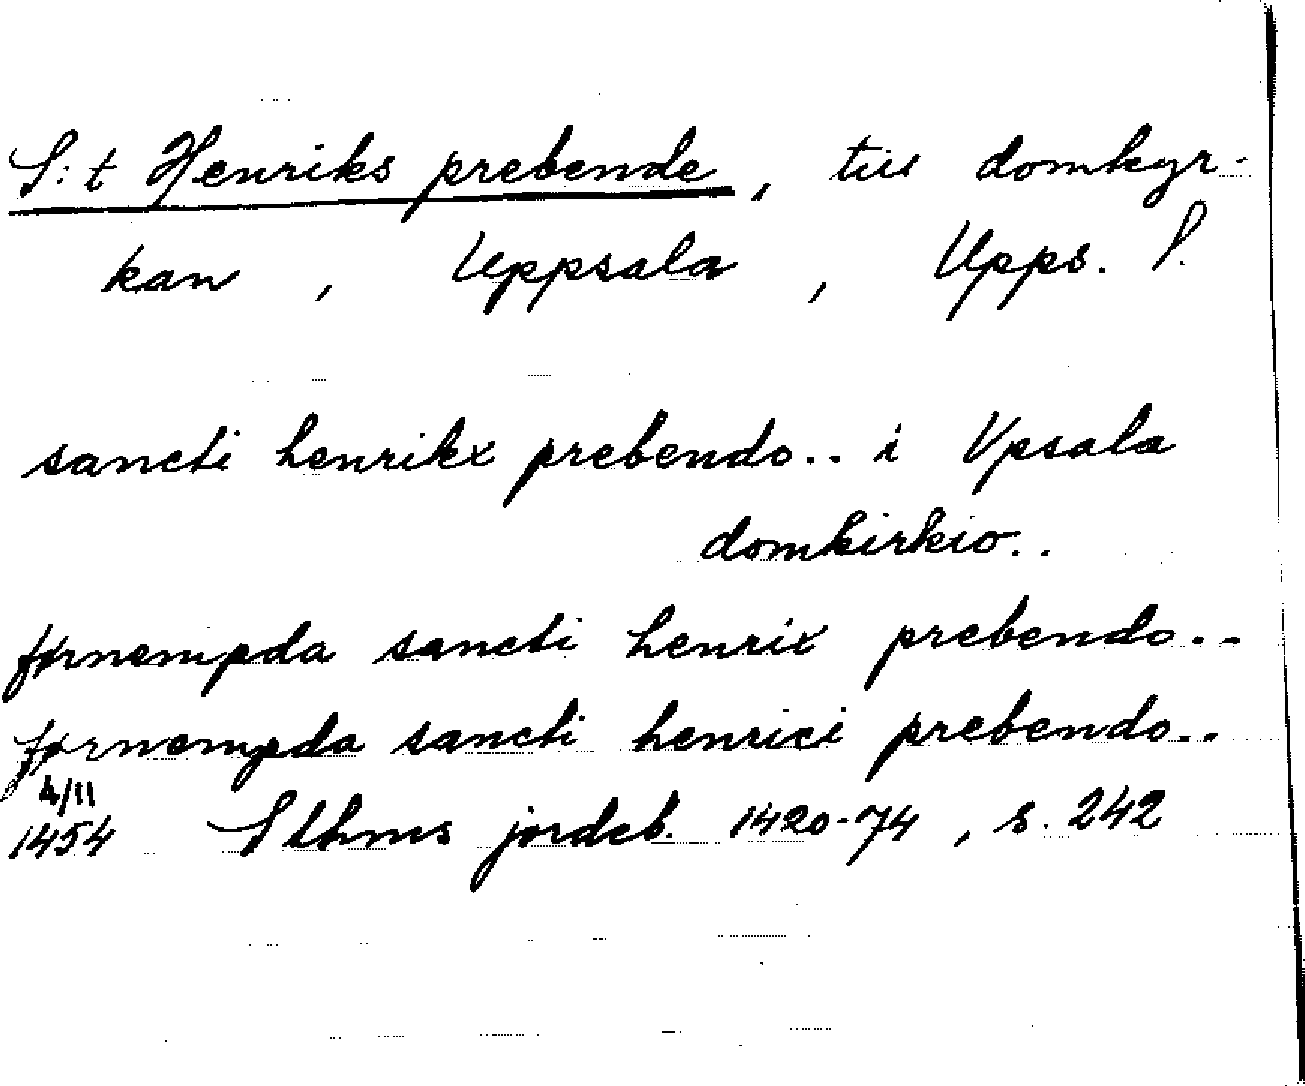 S:t Henriks prebende, till domkyr-
kan, Uppsala, Upps. l.
sancti henrikx prebendo.. i Vpsala
domkirkio..
førnempda sancti henrix prebendo..
førnempda sancti henrici prebendo..
4/11
1454 Sthms jordeb. 1420-74, s. 242